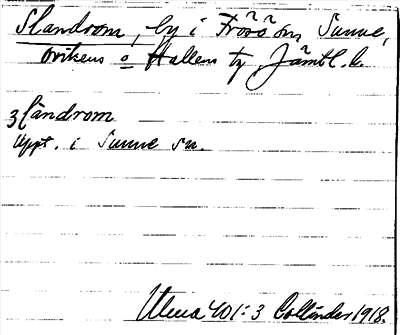 Slandrom, by i Frösö sn, Sunne,
Ovikens o Hallens tg Jämtl. l.
slândrom
Uppt. i Sunne sn.
Ulma 401:3 Collinder 1918.